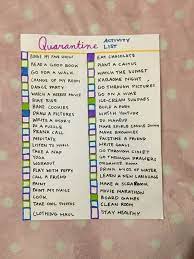 Quarantine ACTIVITY LIST
BINGE MY FAVE SHOW
READ A GOOD BOOK
GO FOR A WALK
CHANGE UP MY ROOM
DANCE PARTY
WATCH A NETFLIX MOVIE
BIKE RIDE
BAKE COOKIES
DRAW A PICTURE
WRITE A
DO A PUZZLE
PRANK CALL
MEDITATE
LISTEN TO MUSIC
TAKE A NAP
YOGA
WORKOUT
PLAY A GAME
CALL A FRIEND
PAINT
PAINT MY NAILS
COOK
TAKE COOL SELFIES
CLOTHING HAUL
EAT CHOCOLATE
PLANT A CACTUS
WATCH THE SUNSET
KARAOKE NIGHT
GO THROUGH PICTURES
GO ON A HIKE
ICE-CREAM SUNDAES
BUILD A FORT
WATCH YOUTUBE
DO MAKEUP
MAKE BRACELETS
FACETIME A FRIEND
WRITE LETTERS
GO THROUGH CLOSET
GO THROUGH DRAWERS
ORGANIZE
DRINK LOTS OF WATER
LEARN A NEW LANGUAGE
MAKE A
MOVIE MARATHON
BOARD GAMES
CLEAN ROOM
STAY HEALTHY